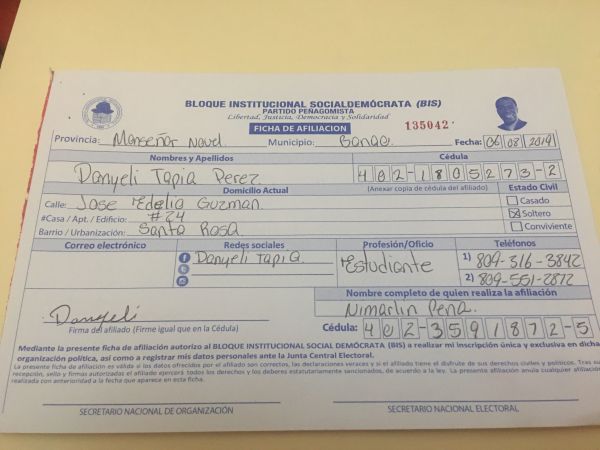 BLOQUE INSTITUCIONAL SOCIALDEMÓCRATA (BIS)
PARTIDO PEÑAGOMISTA
Libertad, Justicia, Democracia y Solidaridad
FICHA DE AFILIACION 135042
Provincia: Monseñor Nouel Municipio: Bonao Fecha: 06/08/2019
Nombres y Apellidos Cédula
Danyeli Tapia Perez 402-1805273-2
Domicilio Actual (Anexar copia de cédula del afiliado) Estado Civil
Calle: Jose Edelia Guzman Casado
#Casa / Apt. / Edificio: #24 Soltero
Barrio / Urbanización: Santa Rosa Conviviente
Correo electrónico Redes sociales Profesión/Oficio Teléfonos
Danyeli Tapia Estudiante 1) 809-316-3842
2) 809-551-2872
Nombre completo de quien realiza la afiliación
Danyeli Nimarlin Peña.
Firma del afiliado (Firme igual que en la Cédula) Cédula: 402-3591872-5
Mediante la presente ficha de afiliación autorizo al BLOQUE INSTITUCIONAL SOCIAL DEMÓCRATA (BIS) a realizar mi inscripción única y exclusiva en dicha
organización política, así como a registrar mis datos personales ante la Junta Central Electoral.
La presente ficha de afiliación es válida si los datos ofrecidos por el afiliado son correctos, las declaraciones veraces y si el afiliado tiene el disfrute de sus derechos civiles y políticos. Tras su
recepción, sello y firmas autorizadas el afiliado ejercerá todos los derechos y los deberes estatutariamente sancionados, de acuerdo a la ley. La presente afiliación anula cualquier afiliación
realizada con anterioridad a la fecha que aparece en esta ficha.
SECRETARIO NACIONAL DE ORGANIZACIÓN SECRETARIO NACIONAL ELECTORAL